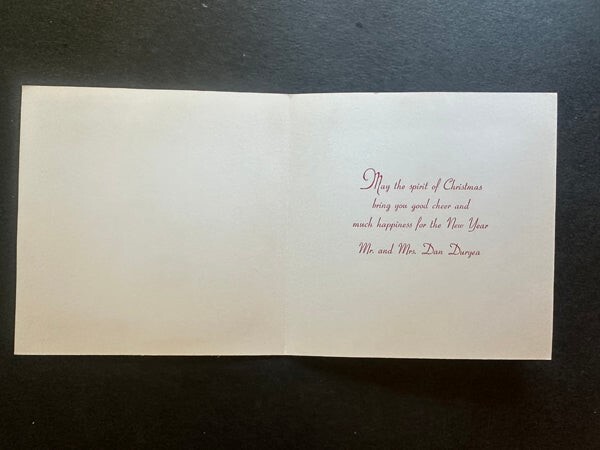 May the spirit of Christmas
bring you good cheer and
much happiness for the New Year
Mr. and Mrs. Dan Duryea